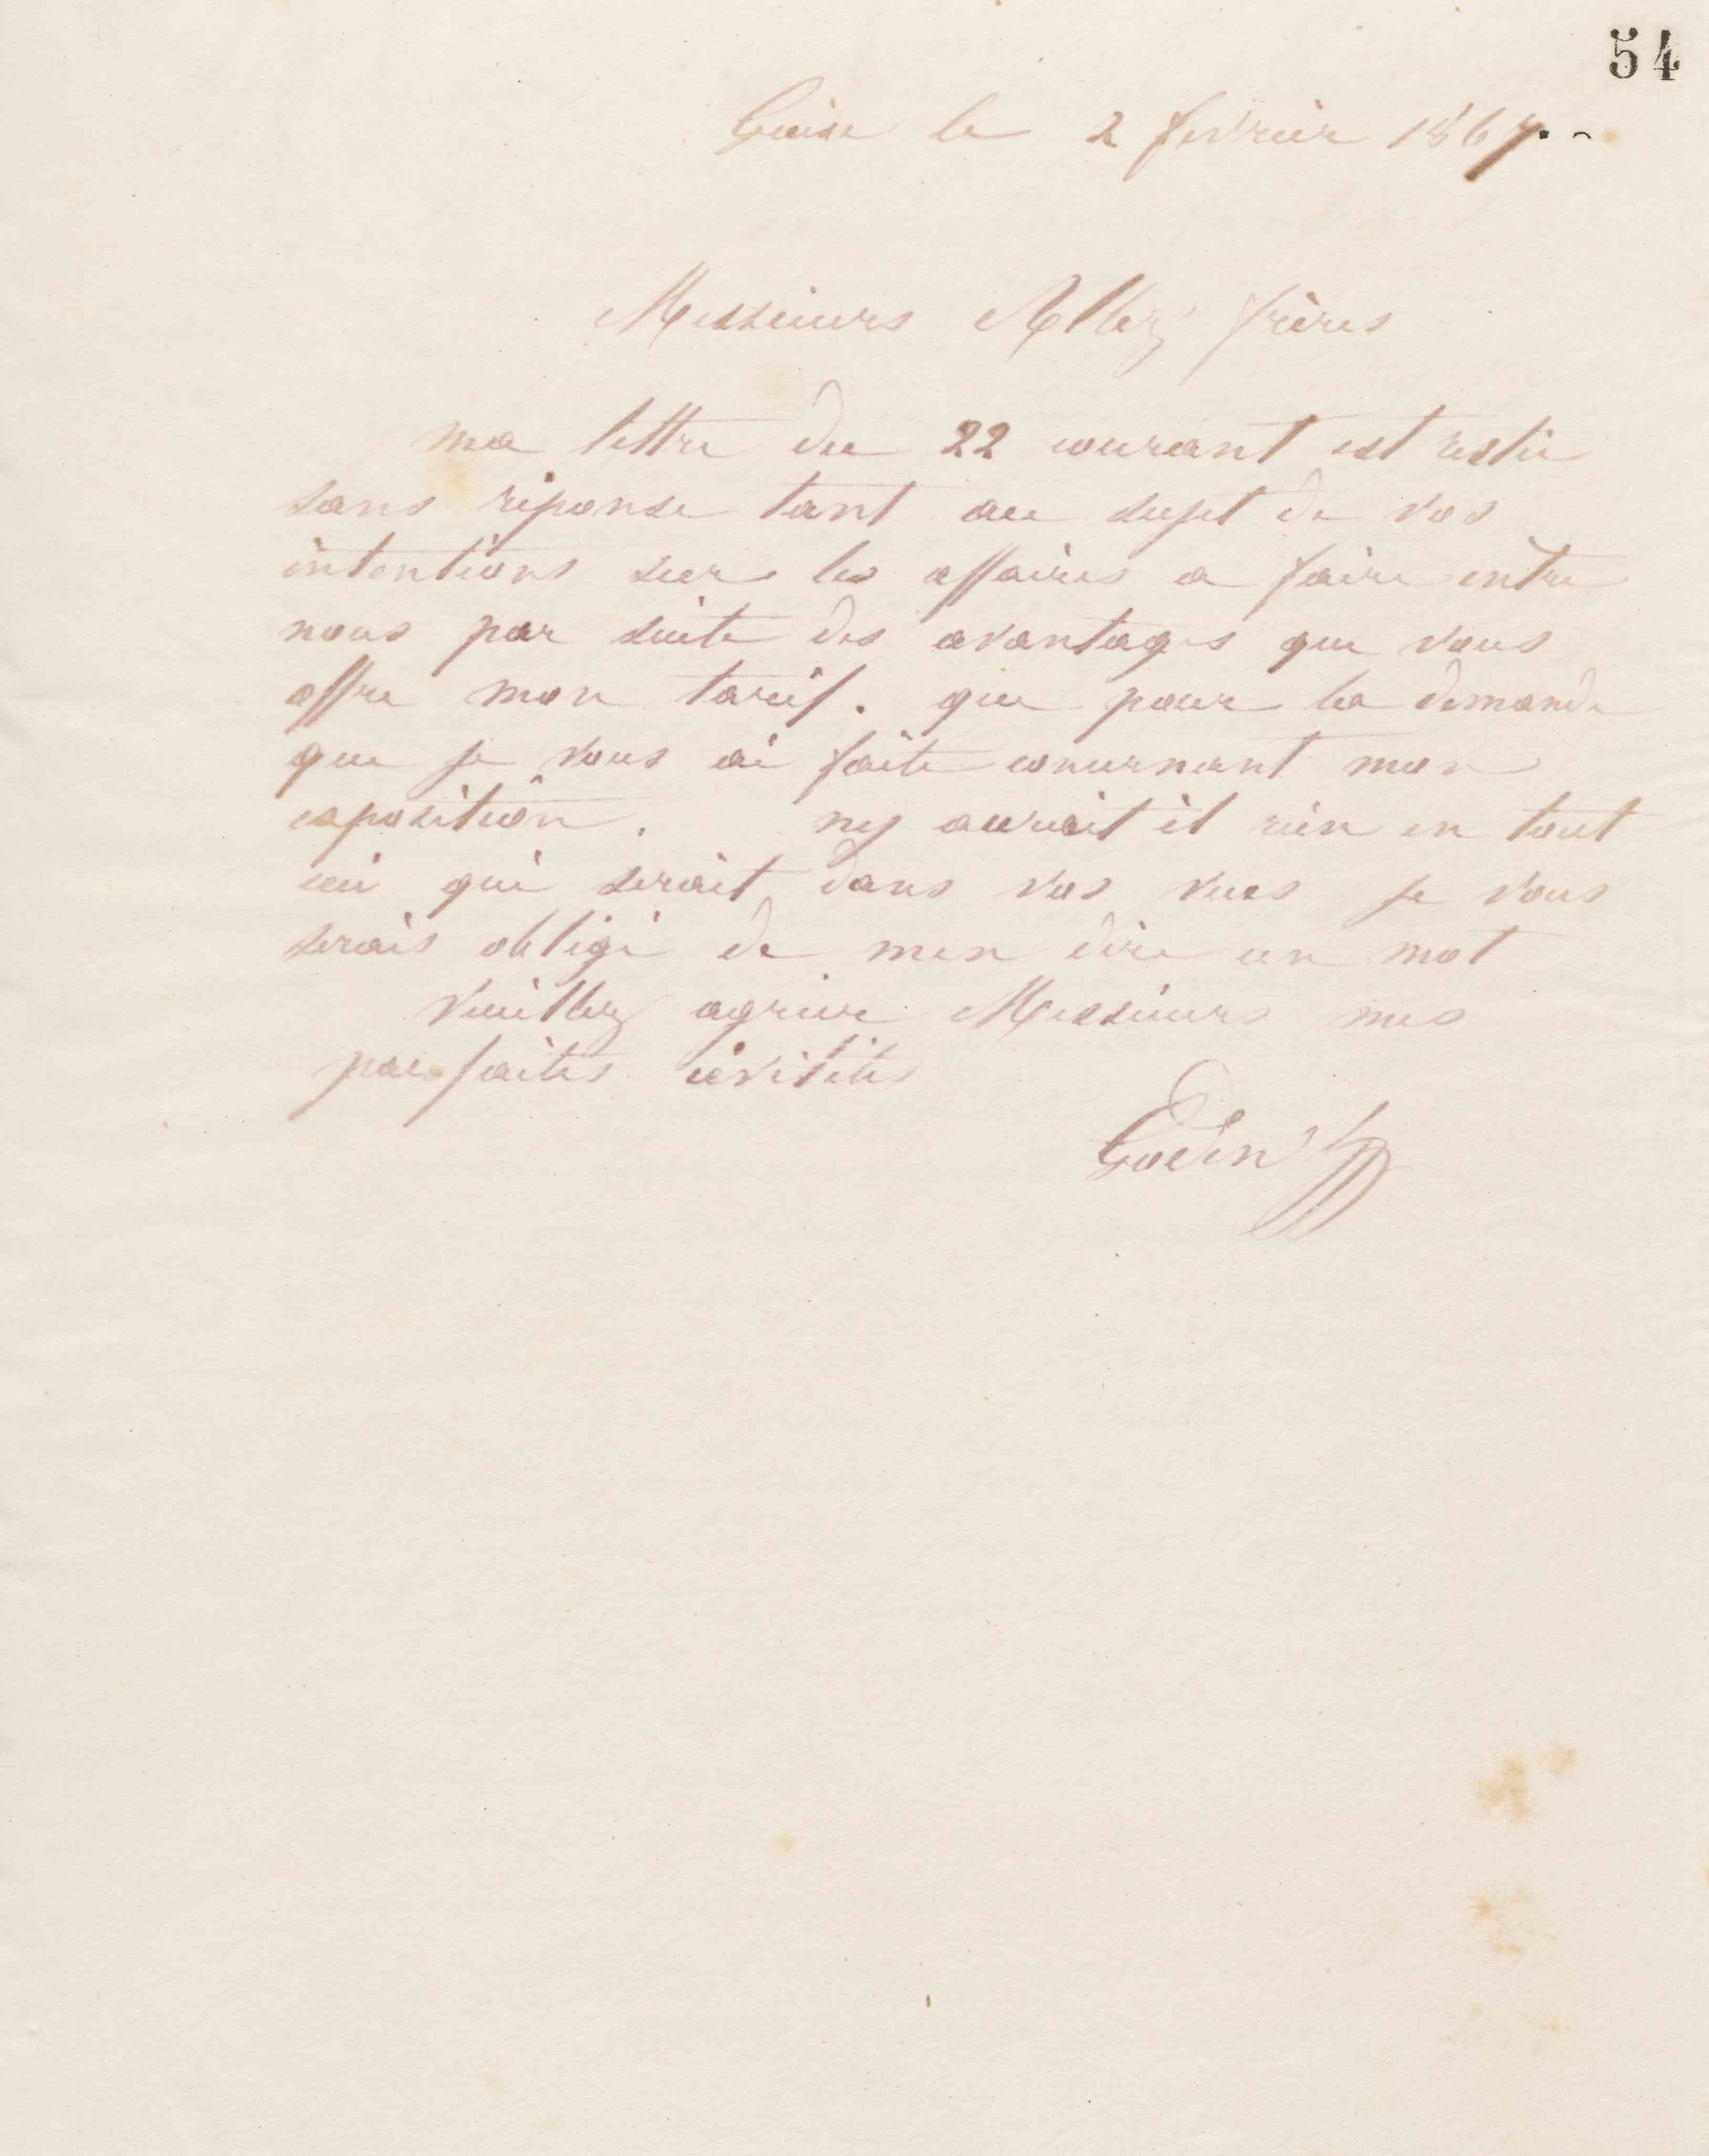 54
Guise le 2 fevrier 1867.
Messieurs Allez frères
ma lettre du 22 courant est restée
sans réponse tant au sujet de vos
intentions sur les affaires a faire entre
nous par suite des avantages que vous
offre mon tarif. que pour la demande
que je vous ai faite concernant mon
exposition. ny aurait il rien en tout
ceci qui serait dans vos vues je vous
serais obligé de men dire un mot
Veuillez agréer Messieurs mes
parfaites civilités
Godin